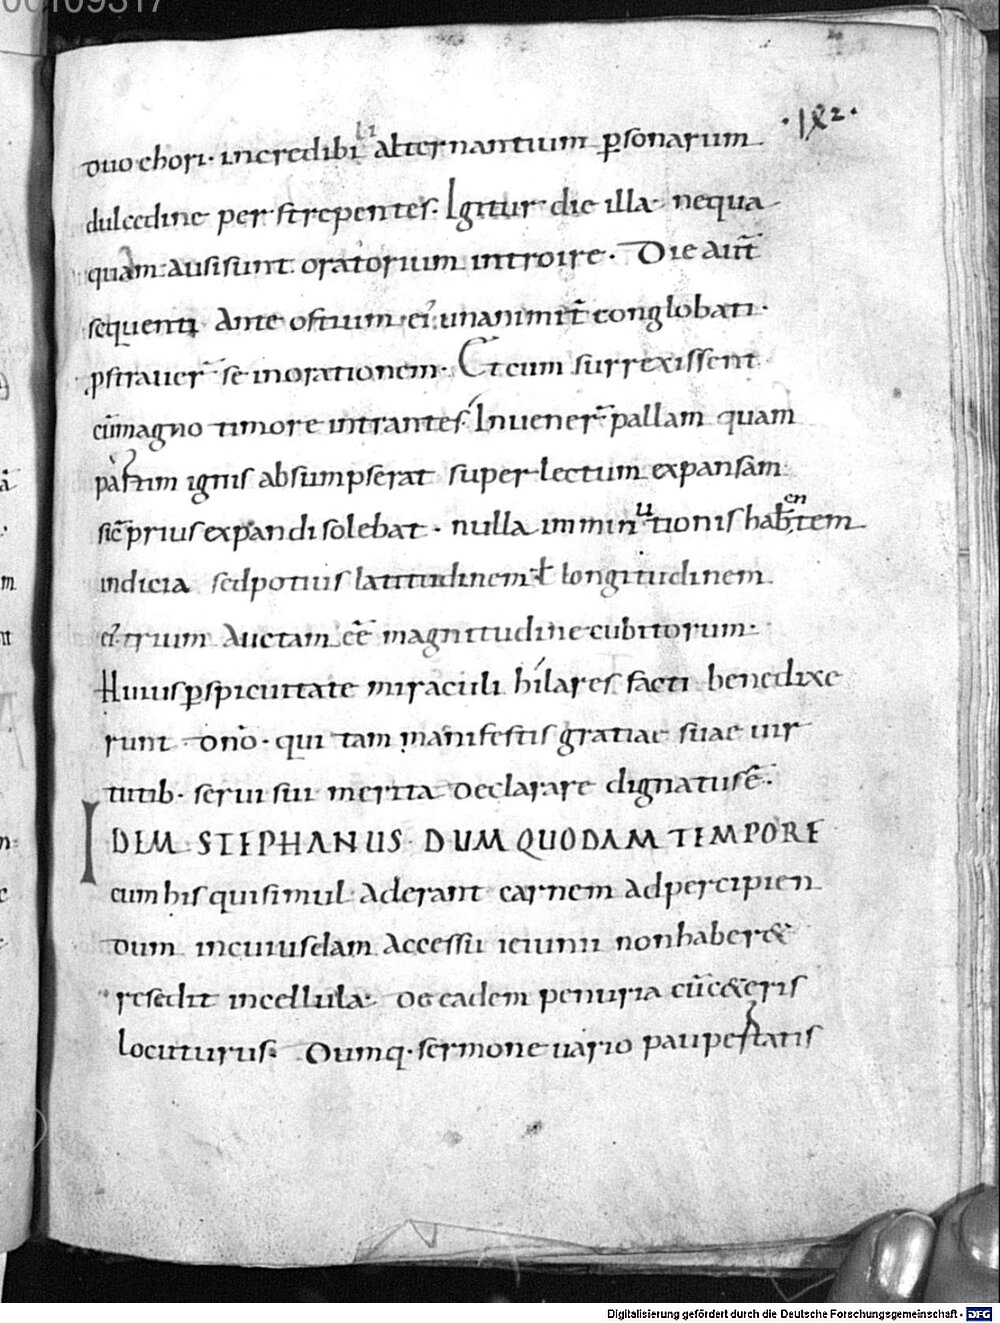 00109317
·lx2·
duo chori· incredibili alternantium p̱sonarum
dulcedine perstrepentes. Igitur die illa nequa
quam ausi sunt oratorium introire. Die aut̄
sequenti Ante ostium ei᾿ unanimit̄ conglobati·
pstrauer̄ se in orationem· Et cum surrexissent
cū magno timore intrantes. Inuener̄ pallam quam
pastim ignis absumpserat super lectum expansam
sic̄ prius expandi solebat· nulla imminutionis habentem
indicia sed potius latitudinem ł longitudinem
ei᾿ trium Auctam eē magnitudine cubitorum·
Huius p̱spicuitate miraculi hilares facti benedixe
runt dnō· qui tam manifestis gratiae suae uir
tutib· serui sui merita declarare dignatus ē·
IDEM STEPHANUS DUM QUODAM TEMPORE
cum his qui simul Aderant carnem ad percipien
dum in cuiusdam Accessu ieiunii non haber&
resedit in cellula· de eadem penuria cū c&eris
locuturus. Dumq· sermone uario paupertatis
Digitalisierung gefördert durch die Deutsche Forschungsgemeinschaft - DFG